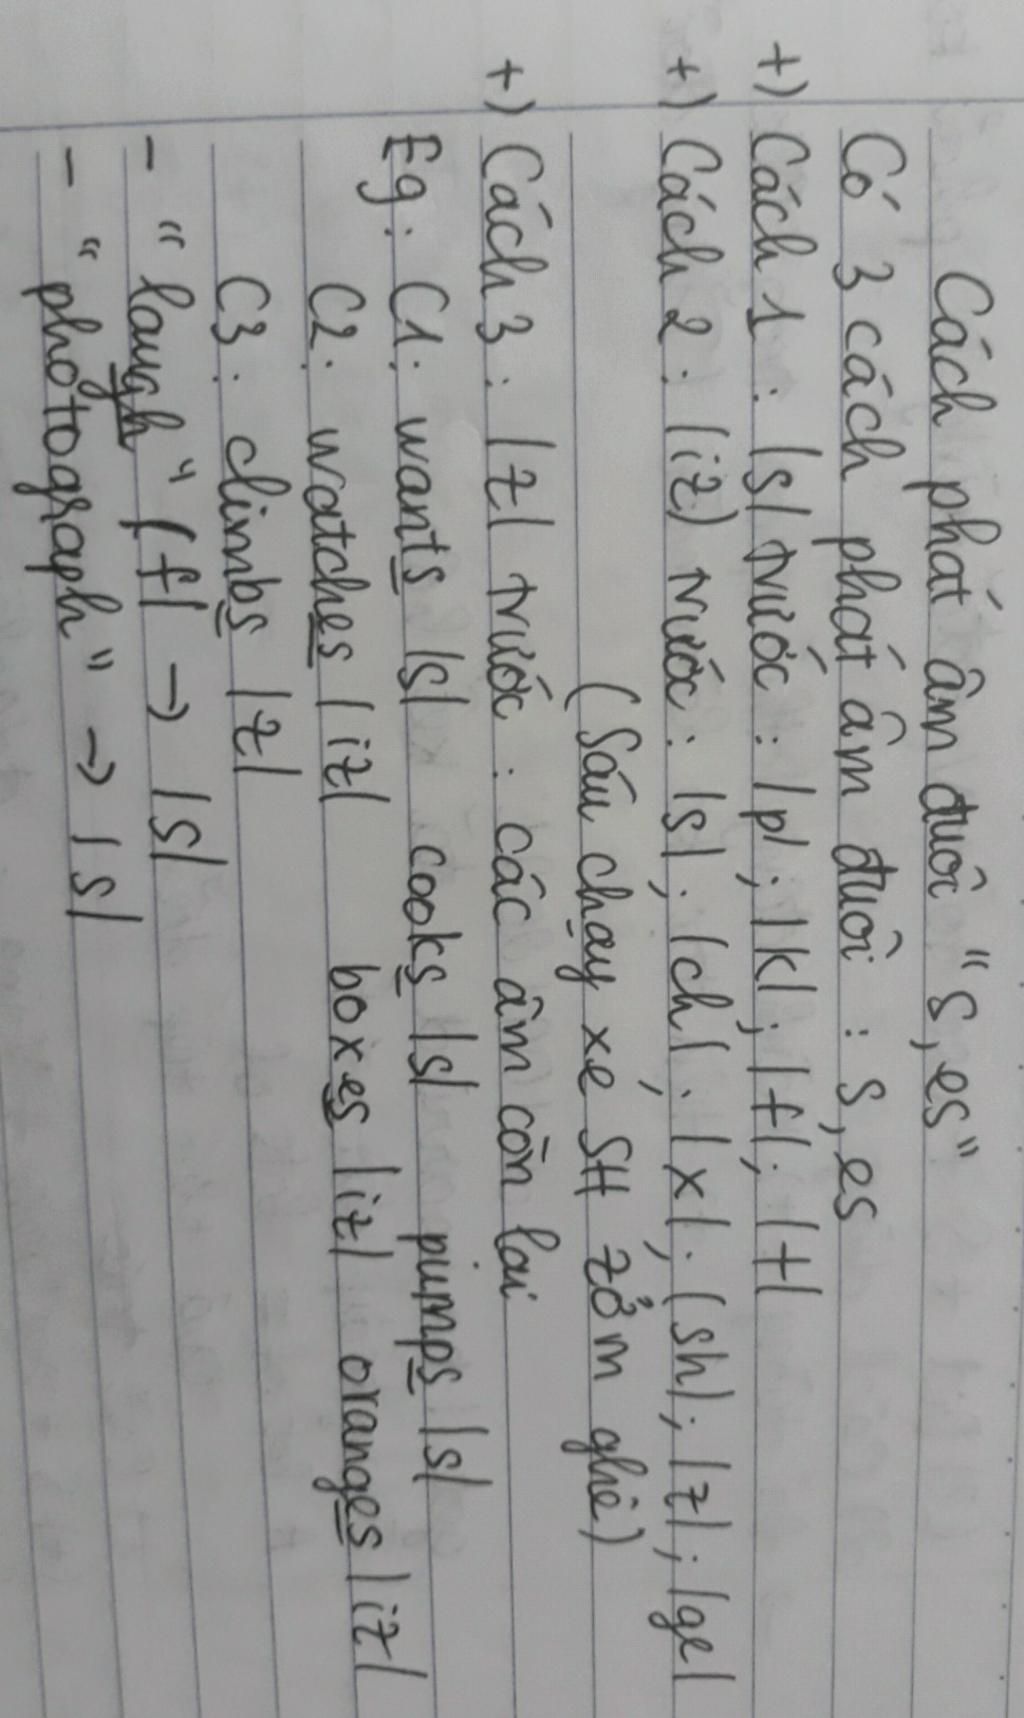 Cách phát âm đuôi "s, es"
Có 3 cách phát âm đuôi : s, es
+) Cách 1 : |s| trước : |p|; |k|; |f|; |t|
+) Cách 2 : |iz) trước : |s|; |ch|; |x|; (sh|; |z|; |ge|
(Sáu chạy xe SH zởm ghê)
+) Cách 3 : |z| trước : các âm còn lại
Eg : C1: wants |s| cooks |s| pumps |s|
C2: watches |iz| boxes |iz| oranges |iz|
C3 : climbs |z|
- "laugh" (f| → |s|
- "photograph" → |s|